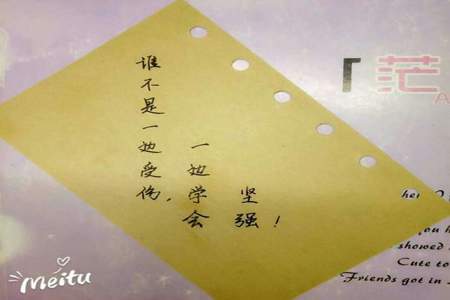 谁不是一边受伤，
一边学会
坚强！
「茫
A
her
you h
showed
Cute to
Friends got in
Meitu